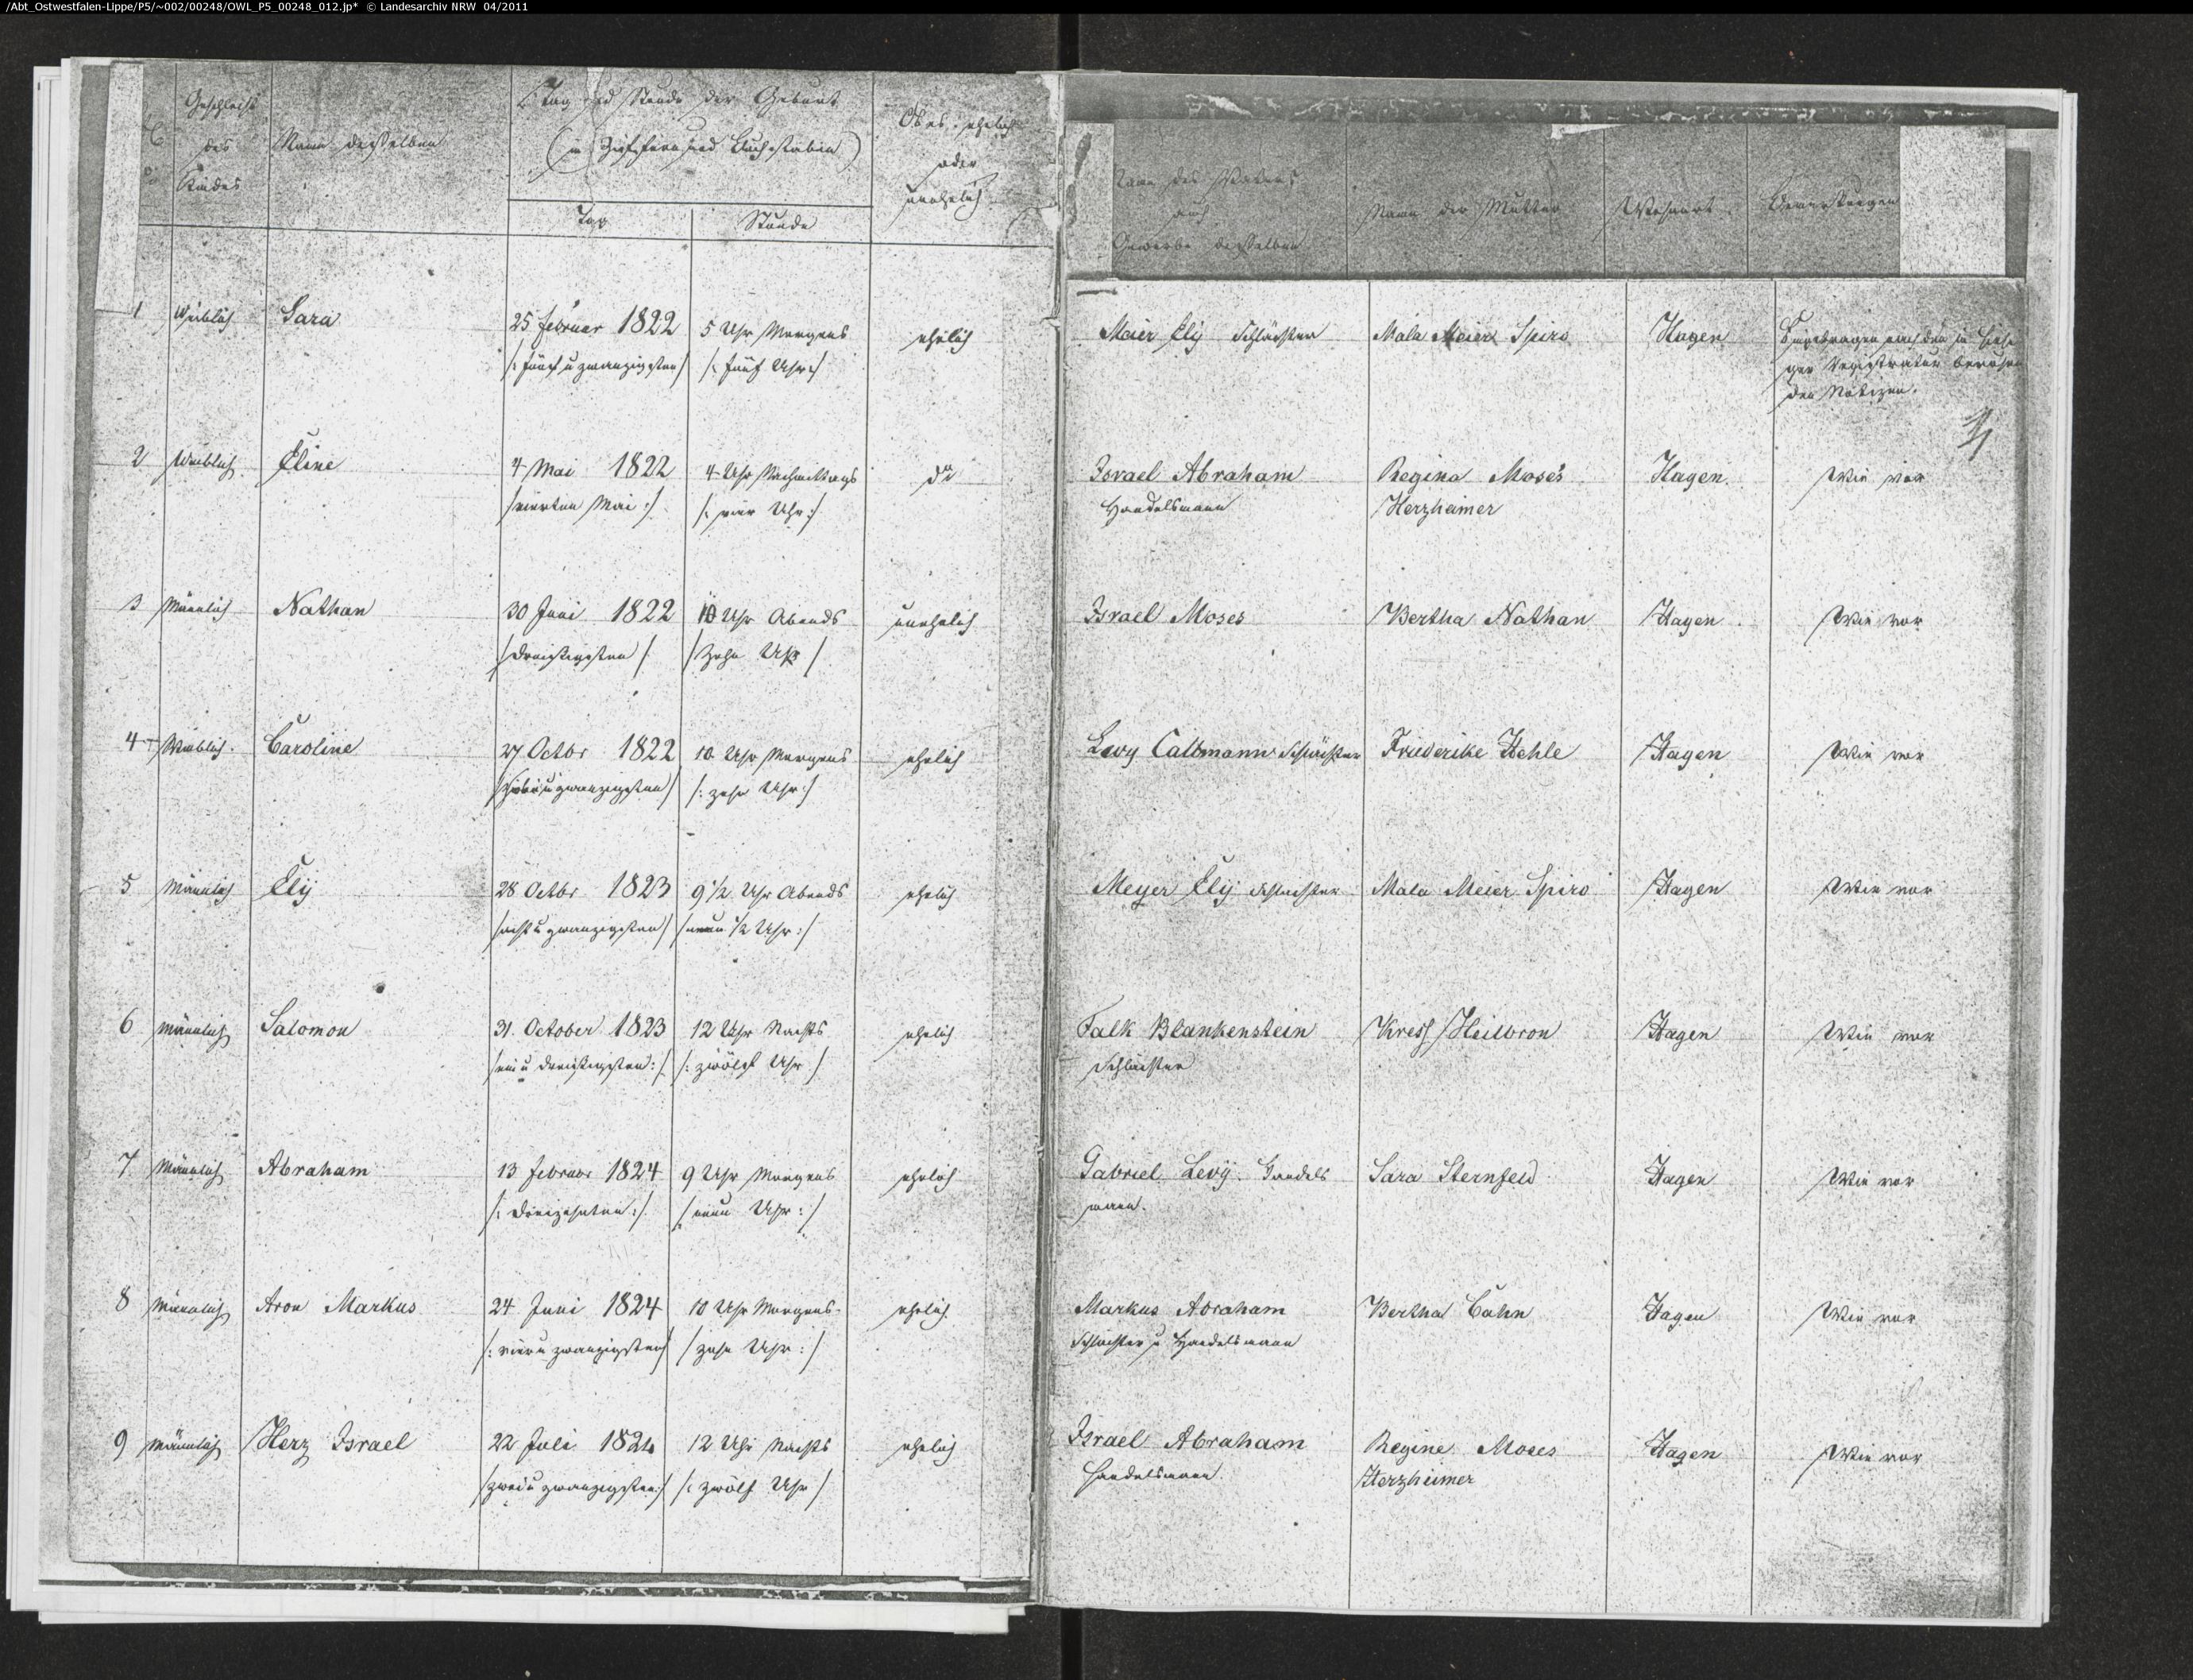 /Abt_Ostwestfalen-Lippe/P5/~002/00248/OWL_P5_00248_012.jp* © Landesarchiv NRW 04/2011
Geschlecht des Kindes
Name desselben
Tag und Stunde der Geburt
(in Ziffern und Buchstaben)
Tag
Stunde
Ob es ehelich
oder
unehelich
Name des Vaters
und
Gewerbe desselben
Name der Mutter
Wohnort
Bemerkungen
1 Weiblich Sara 25 Februar 1822 5 Uhr Morgens ehelich Meier Elij Schlächter Mala Meier Spiro Hagen Eingetragen nach den in hiesi
/: fünf u zwanzigsten / /: fünf Uhr :/ ger Registratur beruhen
den Notizen.
2 Weiblich Eline 4 Mai 1822 4 Uhr Nachmittags do Israel Abraham Regina Moses Hagen. Wie vor
/ vierten Mai :/ /: vier Uhr :/ Handelsmann Herzheimer
3 Männlich Nathan 30 Juni 1822 10 Uhr Abends unehelich Israel Moses Bertha Nathan Hagen Wie vor
/ dreißigsten / / Zehn Uhr /
4 Weiblich. Caroline 27 Octbr 1822 10 Uhr Morgens ehelich Levy Callmann Schlächter Friederike Hehle Hagen Wie vor
/ sieben u zwanzigsten / /: zehn Uhr :/
5 Männlich Elij 28 Octbr 1823 9 1/2 Uhr Abends ehelich Meyer Elij Schlachter Mala Meier Spiro Hagen Wie vor
/ acht u zwanzigsten / / neun 1/2 Uhr :/
6 Männlich Salomon 31. October 1823 12 Uhr Nachts ehelich Falk Blankenstein Kress Heilbron Hagen Wie vor
/ ein u dreißigsten :/ /: zwölf Uhr / Schlächter
7 Männlich Abraham 13 Februar 1824 9 Uhr Morgens ehelich Gabriel Levÿ. Handels Sara Sternfeld Hagen Wie vor
/: dreizehnten :/ / neun Uhr :/ mann.
8 Männlich Aron Markus 24 Juni 1824 10 Uhr Morgens ehelich Markus Abraham Bertha Cahn Hagen Wie vor
/: vier u zwanzigsten / / zehn Uhr :/ Schlächter u Handelsmann
9 Männlich Herz Israel 22 Juli 1824 12 Uhr Nachts ehelich Israel Abraham Regine Moses Hagen Wie vor
/ zwei u zwanzigsten :/ /: zwölf Uhr / Handelsmann. Herzheimer